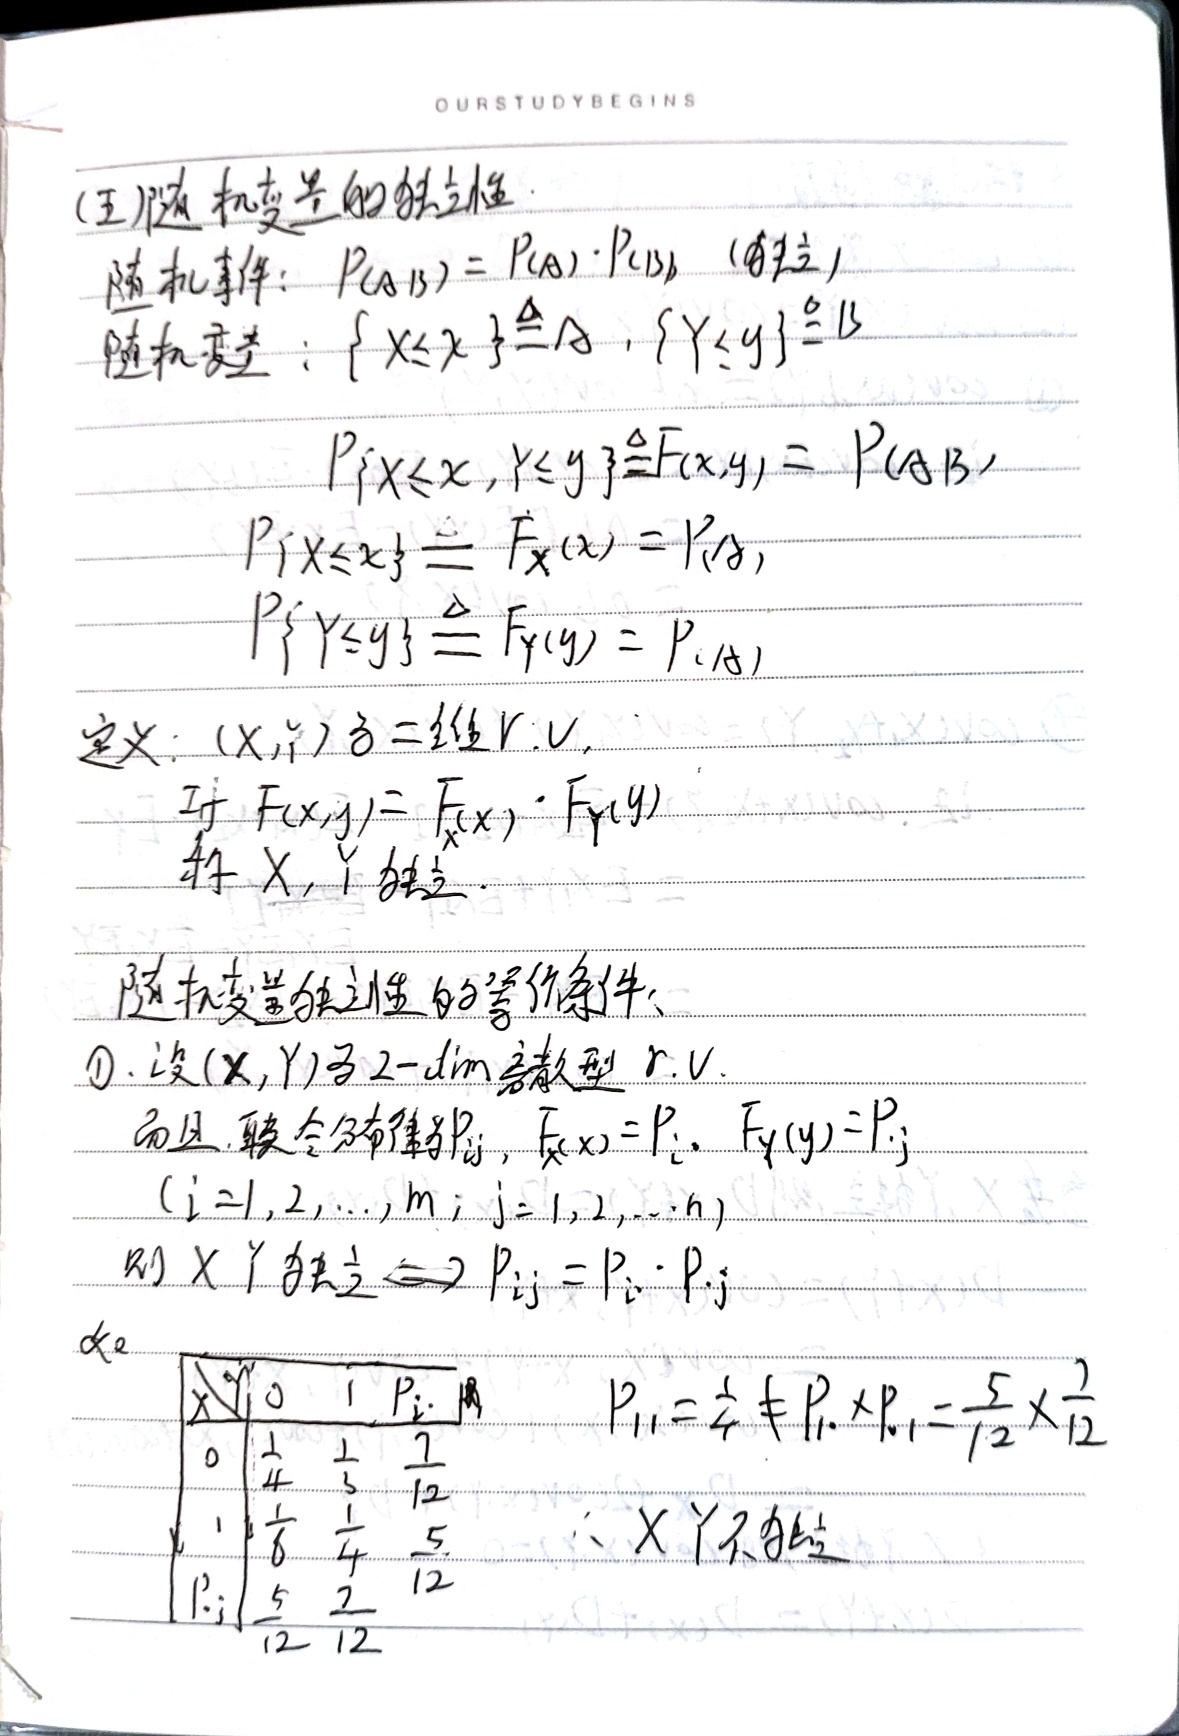 OURSTUDYBEGINS
(五)随机变量的独立性.
随机事件: P(AB) = P(A)·P(B) (独立)
随机变量: {X≤x}≜A, {Y≤y}≜B
P{X≤x, Y≤y}≜F(x,y) = P(AB)
P{X≤x} ≜ F_X(x) = P(A)
P{Y≤y} ≜ F_Y(y) = P(A)
定义: (X,Y)为二维r.v.
If F(x,y) = F_X(x)·F_Y(y)
称 X, Y 独立.
随机变量独立性的等价条件:
①. 设(X,Y)为2-dim离散型 r.v.
而且 联合分布律为P_ij, F_X(x)=P_i. F_Y(y)=P_.j
(i=1,2,...,m; j=1,2,...n)
则 X Y 独立 ⟺ P_ij = P_i. · P_.j
X\Y 0 1 P_i.
0 1/4 1/3 7/12
1 1/6 1/4 5/12
P_.j 5/12 7/12
P_11 = 1/4 ≠ P_1. × P_.1 = 5/12 × 7/12
∴ X Y不独立